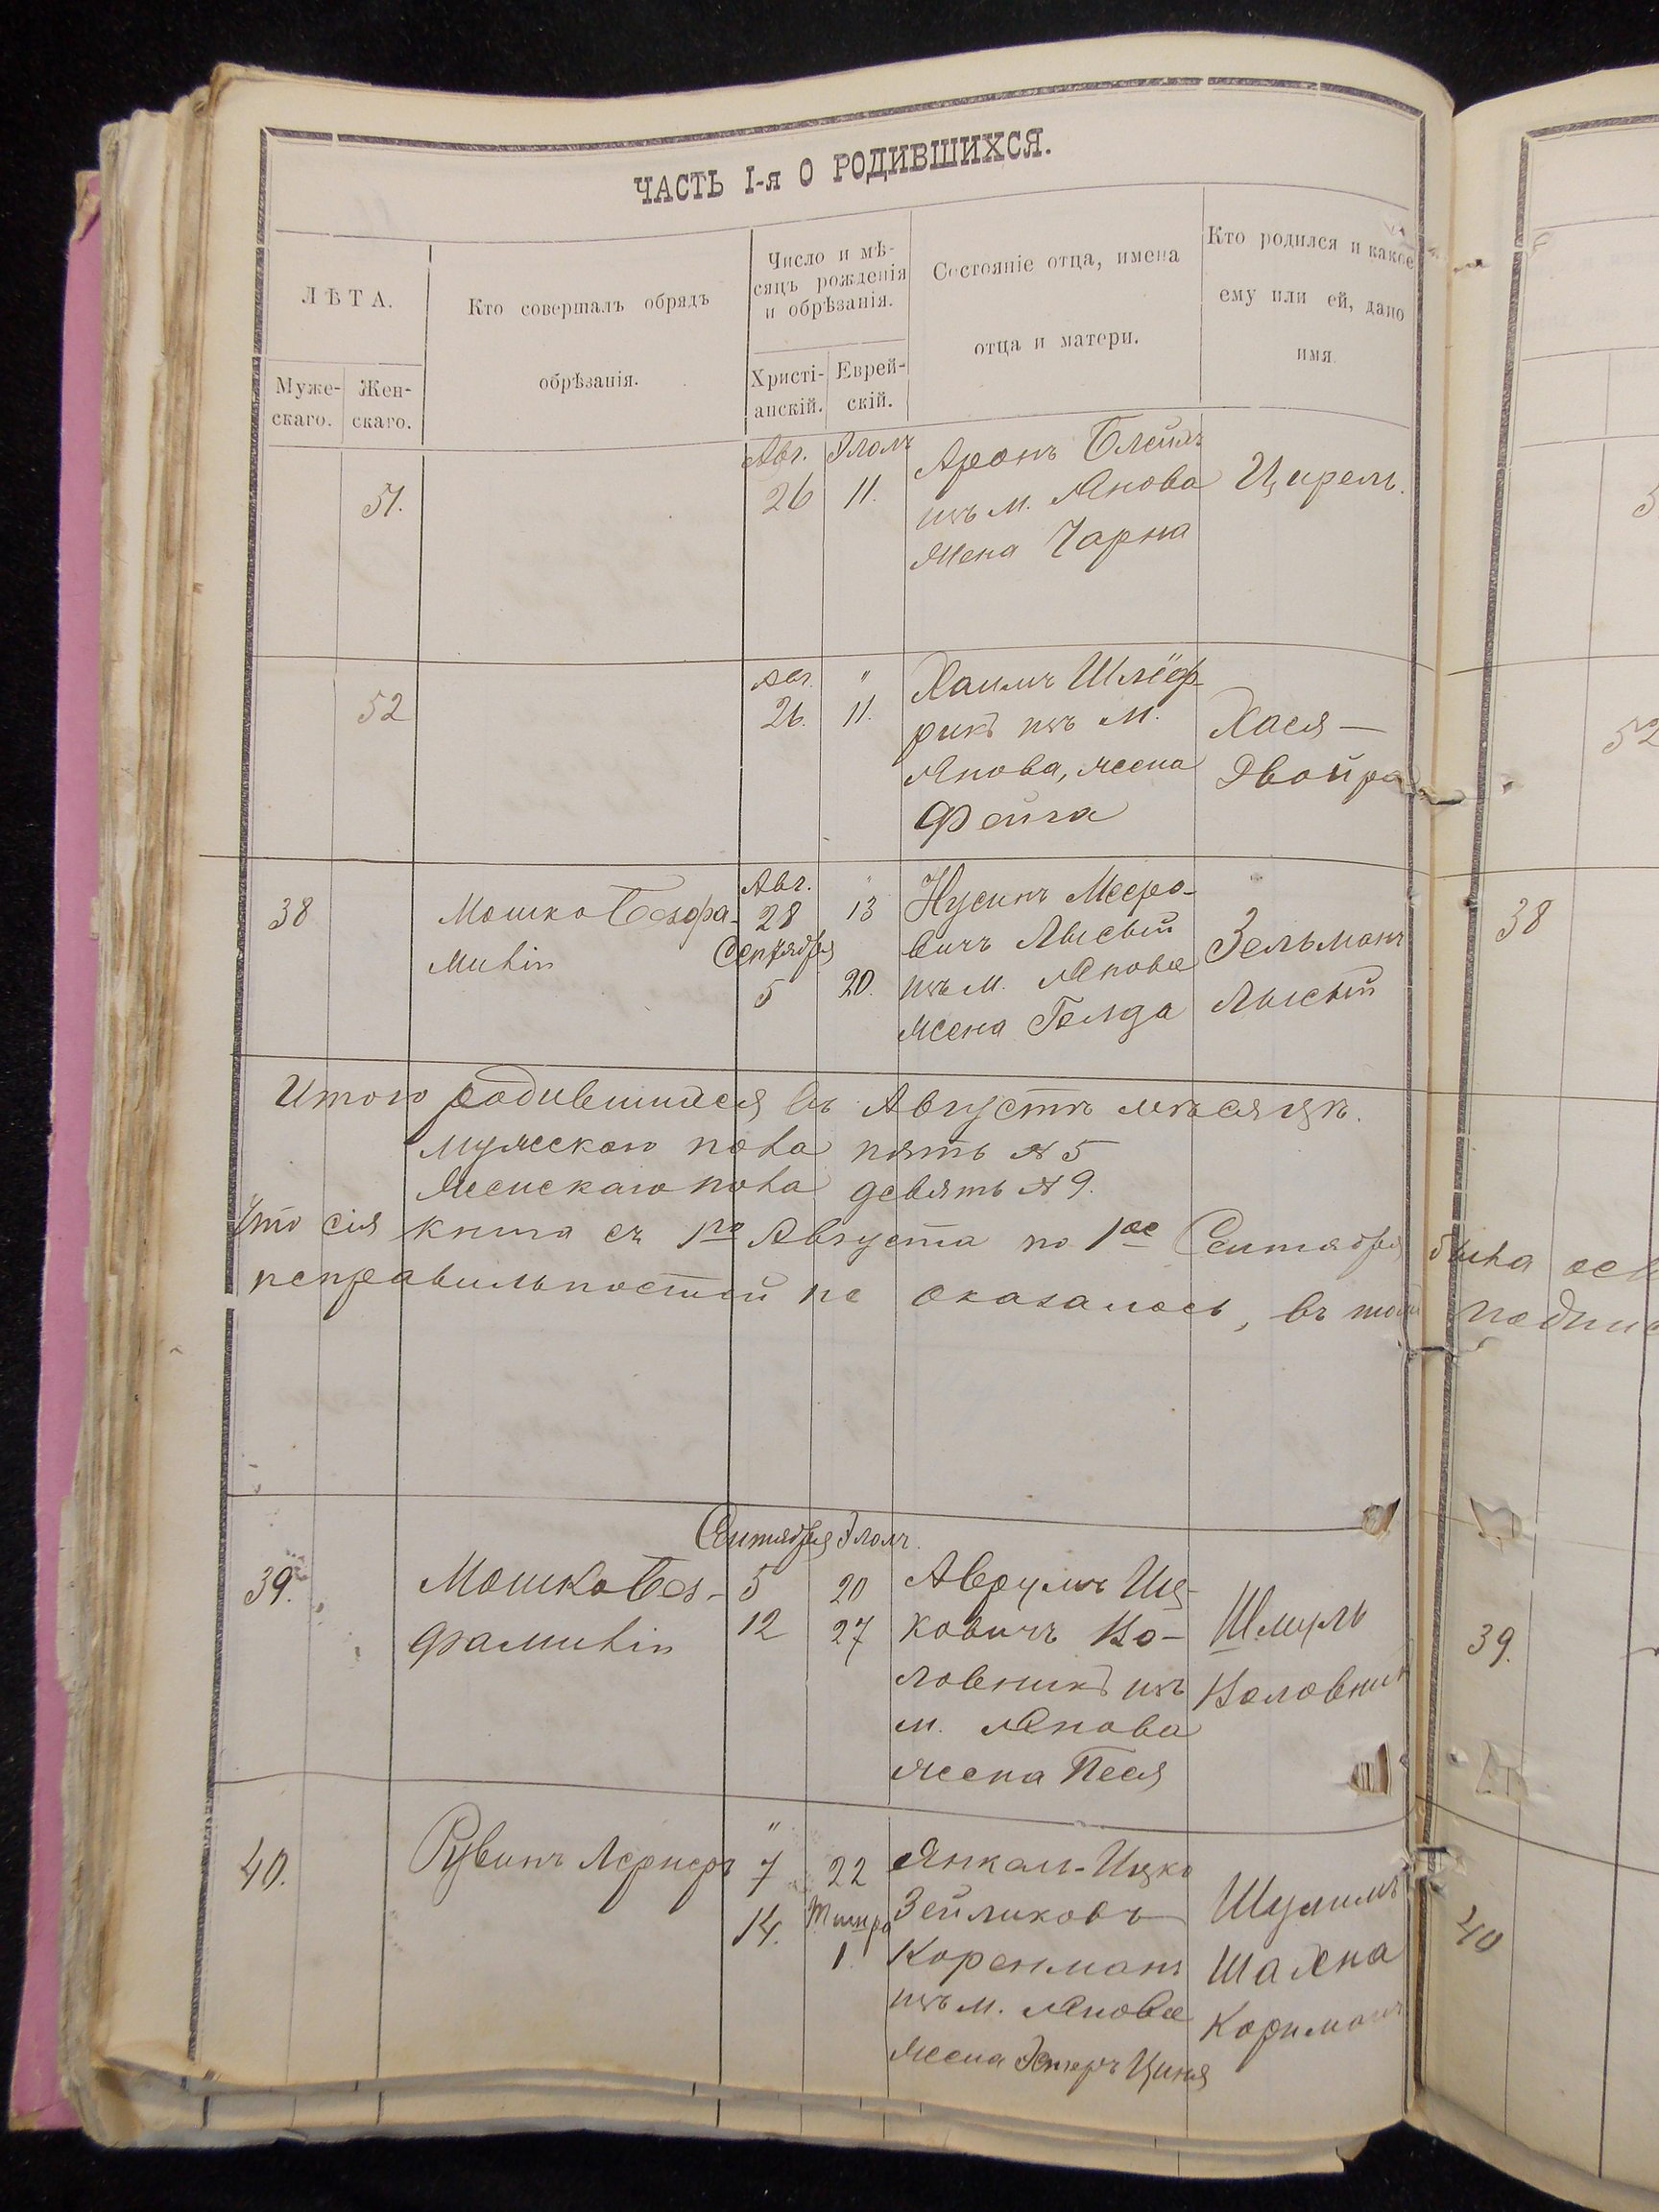 ЧАСТЬ I-я О РОДИВШИХСЯ.
ЛѢТА.
Муже-
скаго.
Жен-
скаго.
Кто совершалъ обрядъ
обрѣзанія.
Число и мѣ-
сяцъ рожденія
и обрѣзанія.
Христі-
анскій.
Еврей-
скій.
Состояніе отца, имена
отца и матери.
Кто родился и какое
ему или ей, дано
имя
51.
Авг.
26
Элолъ
11.
Аронъ
изъ м. Янова
жена Чарна
Цирель.
52
Авг.
26.
"
11.
Хаимъ
рикъ изъ м.
Янова, жена
Фейга
Хася —
Двойра
52
38
Мошко Безфа-
миліи
Авг.
28
Сентября
5
"
13
20.
Нусинъ Мееро-
вичъ Лысый
изъ м. Янова
жена Голда
Зельманъ
Лысый
38
Итого родившихся въ Августѣ мѣсяцѣ.
мужскаго пола пять № 5
Женскаго пола девять № 9.
Что сія книга съ 1го Августа по 1ое Сентября была
неправильностей не оказалось, въ томъ
39.
Мошко Без-
фамиліи
Сентября
5
12
Элолъ.
20
27
Аврумъ Иц-
ковичъ Ко-
ловникъ изъ
м. Янова
жена Песя
Шмуль
Коловникъ
39.
40.
Рувинъ Лернеръ
"
7
14.
22
Тишра
1.
Янкель-Ицко
Зейликовъ
Коренманъ
изъ м. Янова
жена Эстеръ Циня
Шулимъ
Шахна
Корнманъ
40